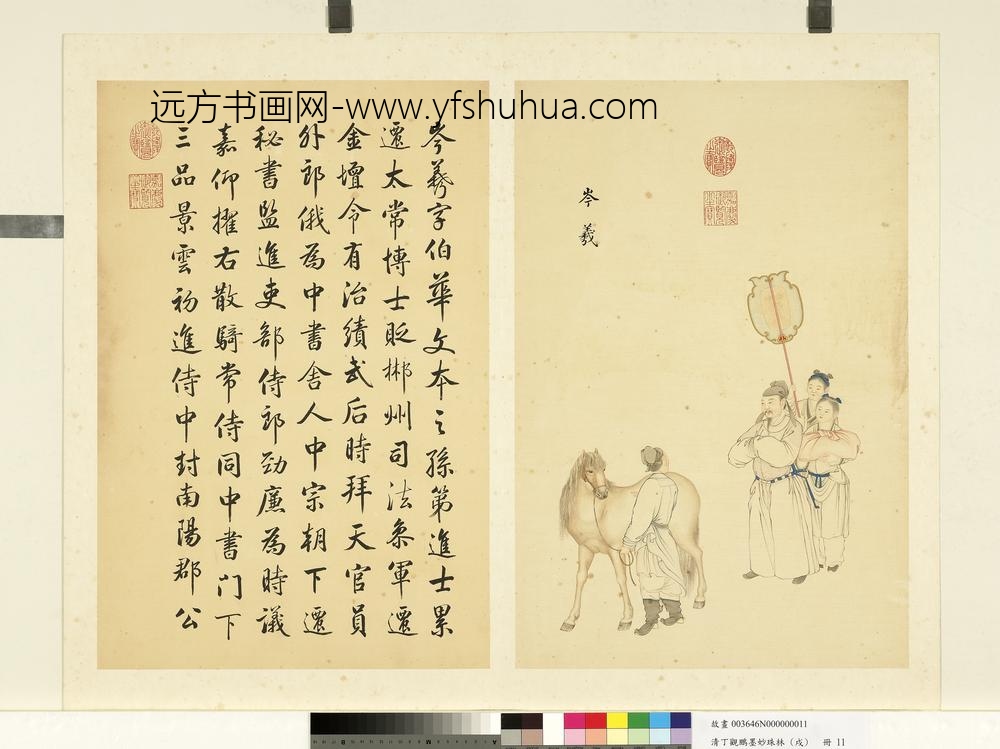 远方书画网-www.yfshuhua.com
岑羲
岑羲字伯華文本之孫第進士累
遷太常博士貶郴州司法叅軍遷
金壇令有治績武后時拜天官員
外郎俄為中書舍人中宗朝下遷
秘書監進吏部侍郎勁廉為時議
嘉仰擢右散騎常侍同中書門下
三品景雲初進侍中封南陽郡公
故畫 003646N000000011
清丁觀鵬墨妙珠林（戌） 冊 11